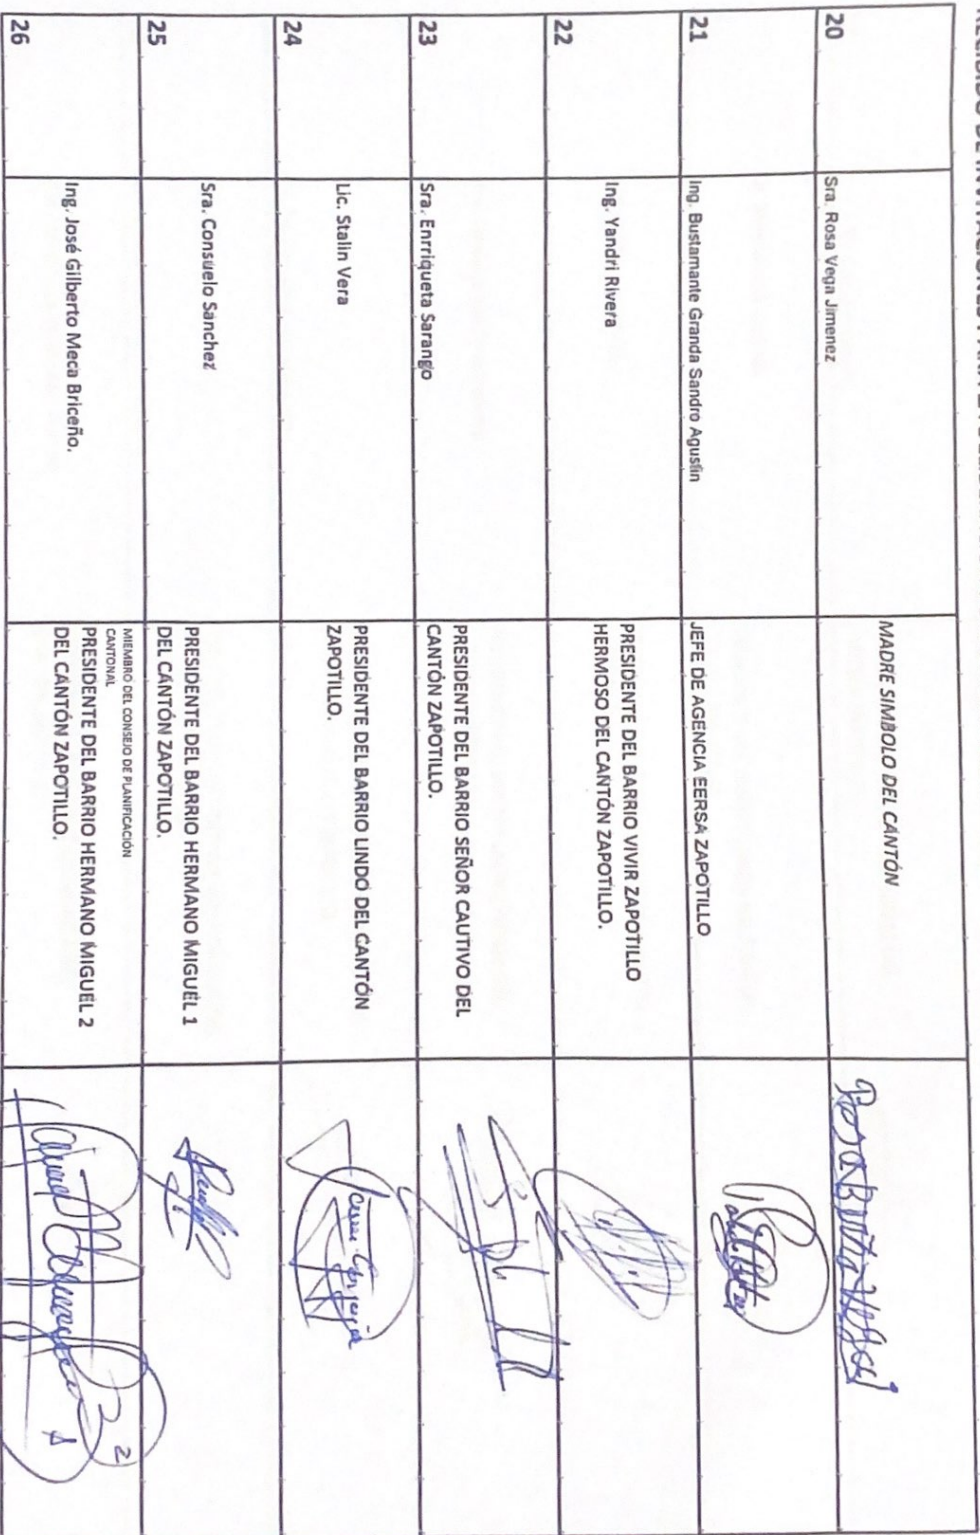 20
Sra. Rosa Vega Jimenez
MADRE SIMBOLO DEL CANTÓN
21
Ing. Bustamante Granda Sandro Agustin
JEFE DE AGENCIA EERSA ZAPOTILLO
22
Ing. Yandri Rivera
PRESIDENTE DEL BARRIO VIVIR ZAPOTILLO
HERMOSO DEL CANTÓN ZAPOTILLO.
23
Sra. Enrriqueta Sarango
PRESIDENTE DEL BARRIO SEÑOR CAUTIVO DEL
CANTÓN ZAPOTILLO.
24
Lic. Stalin Vera
PRESIDENTE DEL BARRIO LINDO DEL CANTÓN
ZAPOTILLO.
25
Sra. Consuelo Sanchez
PRESIDENTE DEL BARRIO HERMANO MIGUEL 1
DEL CANTÓN ZAPOTILLO.
26
Ing. José Gilberto Meca Briceño.
MIEMBRO DEL CONSEJO DE PLANIFICACIÓN
CANTONAL
PRESIDENTE DEL BARRIO HERMANO MIGUEL 2
DEL CANTÓN ZAPOTILLO.